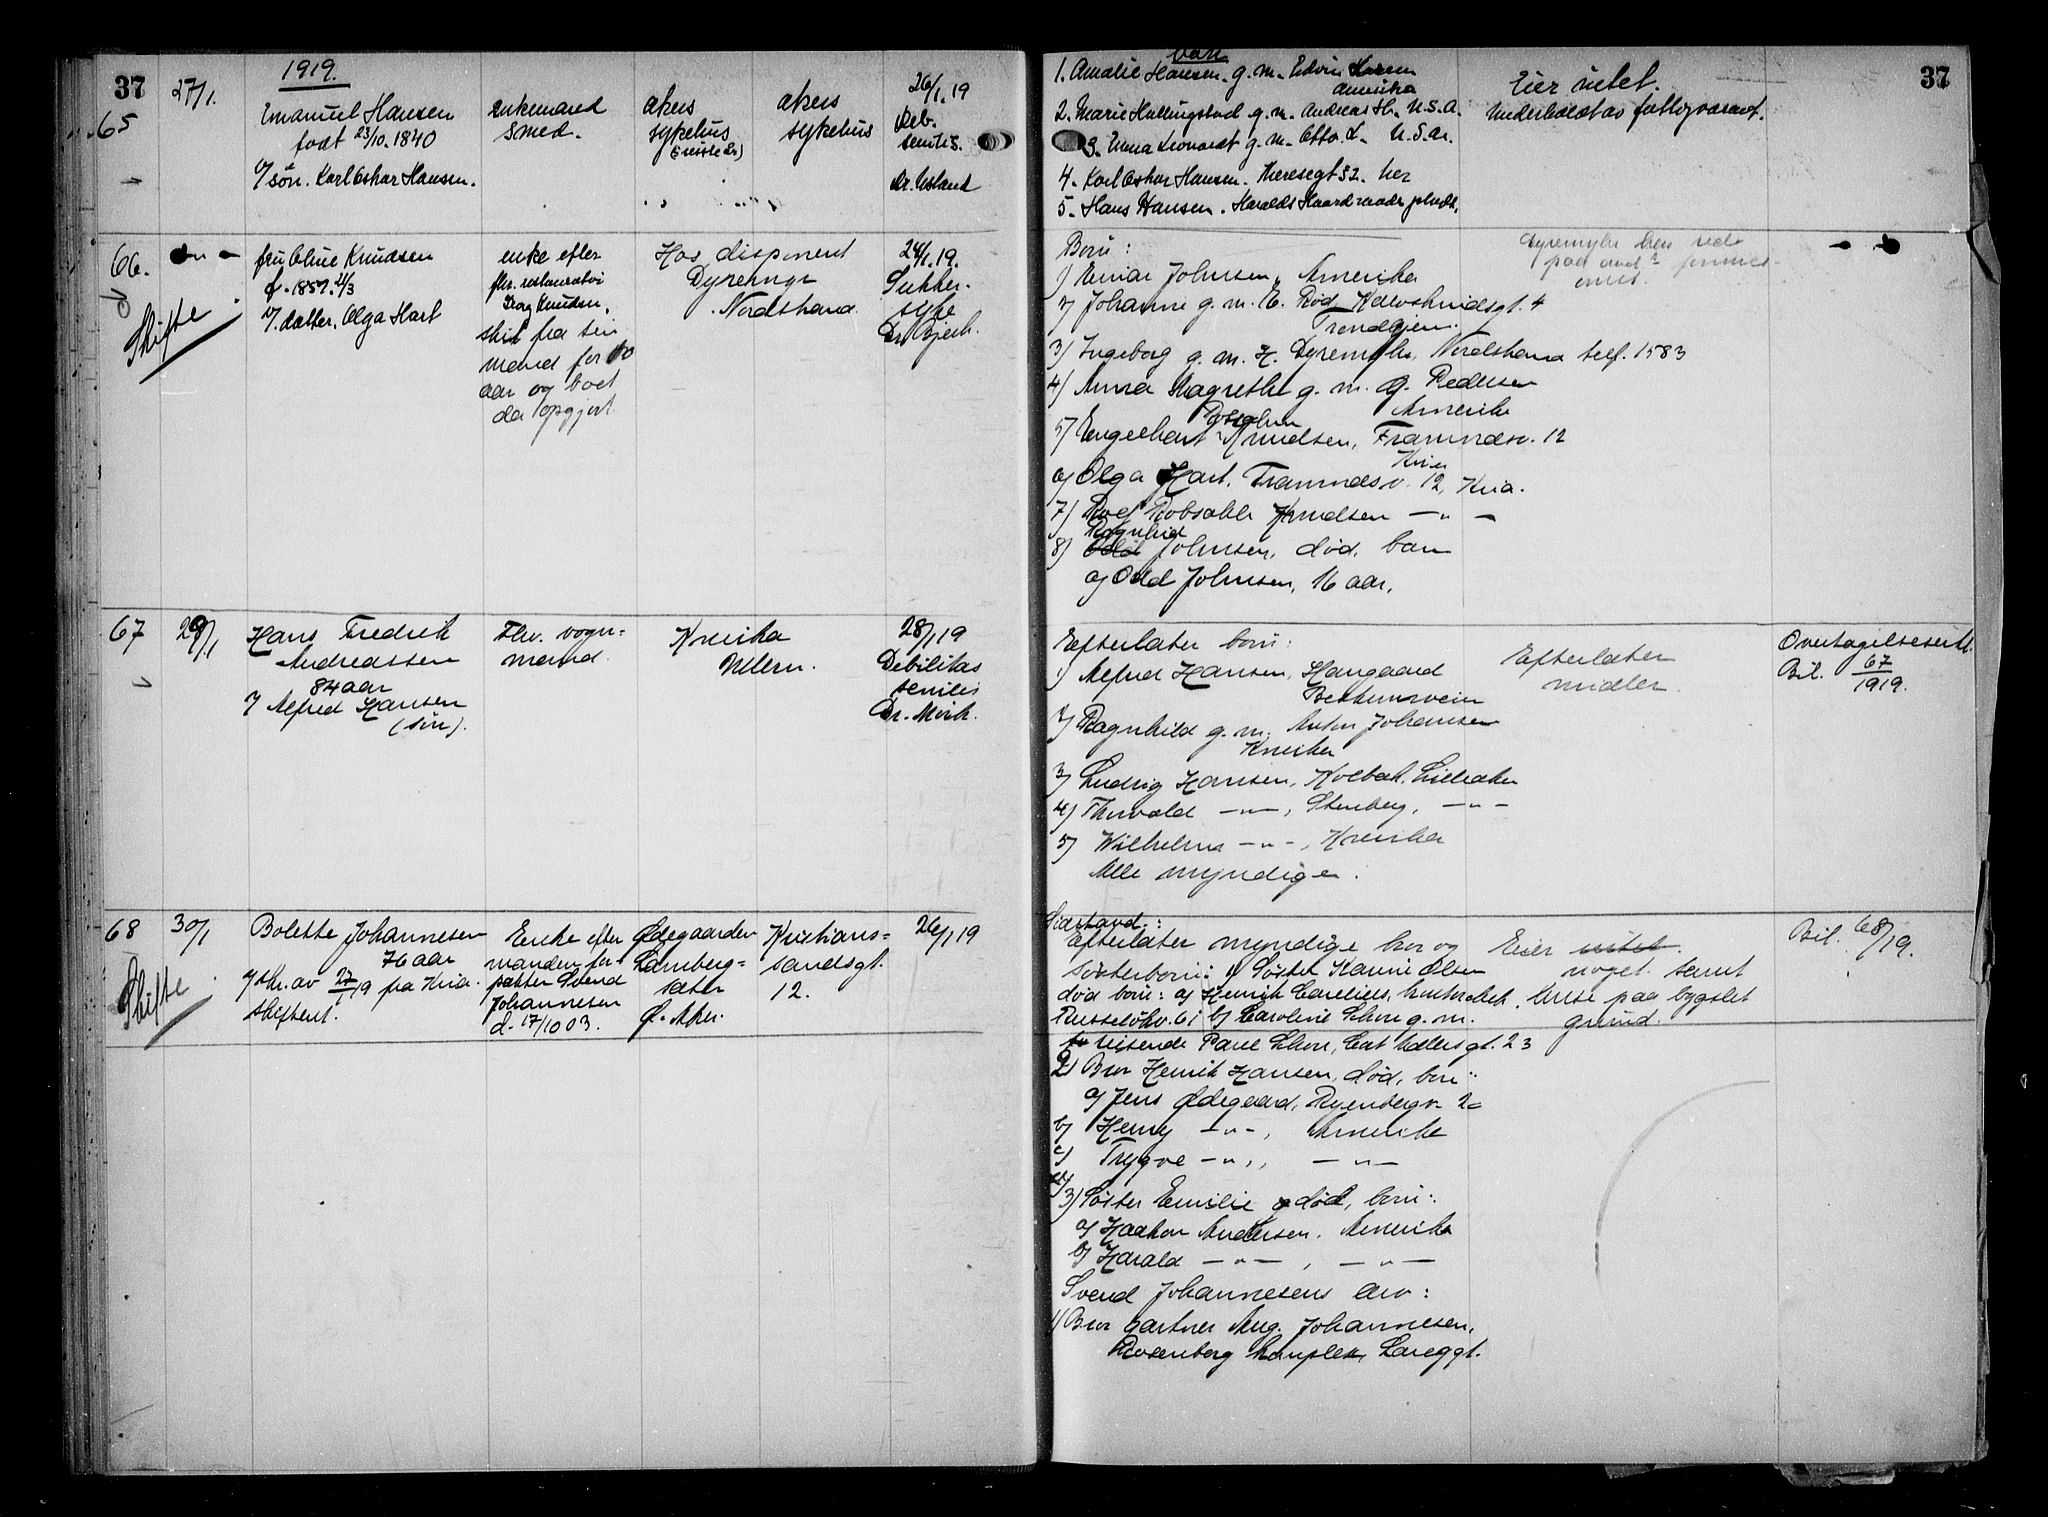 37
1919.
65
27/1.
Emanuel Hansen
født 23/10. 1840
v/ søn. Karl Oskar Hansen.
enkemand
smed.
akers
sykehus
akers
sykehus
26/1.19
Deb.
senilis.
Dr.
66.
Skifte
fru Oline Knudsen
f. 1857. 21/3
v/. datter, Olga Hart
enke efter
fhv. restauratør
Knudsen,
skilt fra sin
mand for
aar og boet
da opgjort.
Hos disponent
Dyremyr
Nordstrand.
24/1.19.
Sukker-
syke
67
29/1
Hans Fredrik
Andreassen
84 aar
v/ Alfred Hansen
(søn).
Fhv. vogn-
mand.
Ullern.
28/1 19
Debilitas
senilis
Dr. Mørk.
68
Skifte
30/1
Bolette Johannesen
76 aar
v/ skr. av 27/1 19 fra Kria.
skifteret.
Enke efter
manden for-
pakter Svend
Johannesen
d. 17/10 03.
Ødegaarden
Lambert-
sæter
Ø. Aker.
Kristians-
sandsgt.
12.
26/1 19
37
Barn
1. Amalie Hansen. g. m. Edvin
Amerika
2. Marie Hallingstad g. m. Andreas H. U.S.A.
3. Emma Leonardt g. m. Otto. L. U.S.A.
4. Karl Oskar Hansen. Theresegt 52. her
5. Hans Hansen. Haralds Haardraades plads.
Eier intet.
Underholdt av fattigvæsenet.
Børn:
1) Einar Johnsen, Amerika
2) Johanne g. m. E. Rød,
Trondhjem.
3) Ingeborg g. m. H. Dyremyhr, Nordstrand telf. 1583
4) Anna Magrethe g. m. Pedersen
Amerika
5) Engelhart Knudsen, Framnesv. 12
Kria
6) Olga Hart. Framnesv. 12, Kria.
7) Robsahl Knudsen — " —
Ragnhild
8) Johnsen, død, barn
a) Odd Johnsen, 16 aar.
Efterlater børn:
1) Alfred Hansen, Haugaard
2) Ragnhild g. m. Anton Johansen
3) Ludvig Hansen, Kolbak, Lilleaker
4) Thorvald — " —, Stenberg, — " —
5) Wilhelm — " —,
Alle myndige.
Efterlater
midler.
Overtagelseserkl.
Bil. 67/1919.
Efterlater myndige bror og
søsterbørn: 1) Søster Karine Olsen
død børn: a) Henrik
b) Caroline g. m.
reisende Paul
2) Bror Henrik Hansen, død, børn:
a) Jens Ødegaard, Ryenbergv. 2
b) Henry — " —, Amerika
c) Trygve — " —, — " —
3) Søster Emilie død, børn:
a) Haakon Andersen. Amerika
b) Harald — " —, — " —
Svend Johannesens arv:
1) Bror gartner Aug. Johannesen,
Rosenborg kompleks,
Eier intet.
noget samt
huse paa bygslet
grund.
Bil. 68/19.